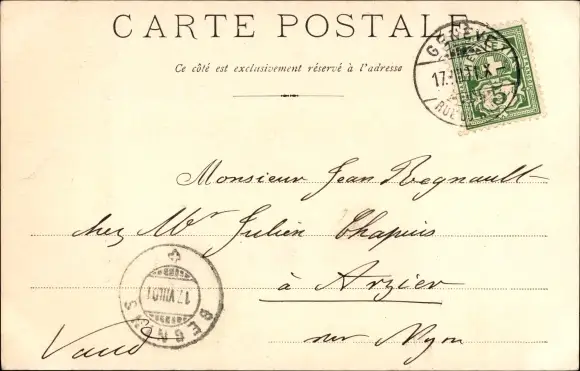 CARTE POSTALE
Ce côté est exclusivement réservé à l'adresse
GENÈVE
17.VII.01.X
RUE
5
Monsieur Jean Regnault
chez Mr Julien Chapuis
à Arzier
sur Nyon
Vaud
BEGNINS
17.VII.01